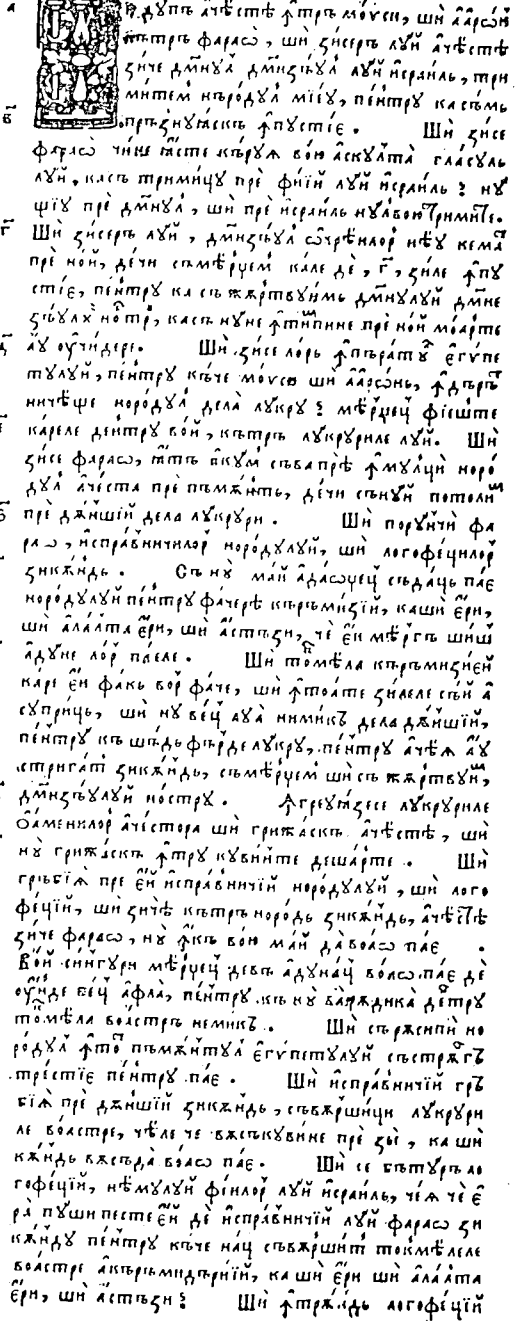 дꙋпъ ачѣстѣ ꙟтръ мо́ѵси, шѝ аарѡ́н
кътръ фараѡ̀, шѝ зисеръ лꙋй ачѣстѣ
зиче дм҃нꙋл дм҃незъꙋл лꙋй і҆сраиль, три
мителѝ нъро́дꙋл мїеꙋ, пе́нтрꙋ ка съмь
пръзнꙋѧскъ ꙟпꙋстїе . Шѝ зи́се
фараѡ̀ чине ѩсте къ́рꙋѧ вою аскꙋлта̀ гла́сꙋль
лꙋй, касъ тримицꙋ прѐ фїїй лꙋй і҆сраиль : нꙋ
щїꙋ прѐ дм҃нꙋл, шѝ прѐ і҆сраиль нꙋлвою тримите.
Шѝ зи́серъ лꙋй, дм҃незъꙋл ѡ҆вреилѡр нѣꙋ кемат
прѐ но́й, де́чи съмѣ́рџем ка́ле дѐ , г҃, зиле ꙟпꙋ
стїе, пе́нтрꙋ ка съ жъртвꙋимь дм҃нꙋлꙋй дм҃не
зъꙋлꙋ но́стрꙋ, касъ нꙋне ꙟтимпине прѐ но́й мо́арте
аꙋ оу҆чи́дере. Шѝ зи́се ло́рь ꙟпърату̀л є҆гѵ́пе
тꙋлꙋй, пе́нтрꙋ къ́че мо́ѵси шѝ аарѡ́нь, ꙟдъръ́т
ничѣще норо́дꙋл дела̀ лꙋкрꙋ : мѣ́рџец фїеще
ка́реле де́нтрꙋ во́й, къ́тръ лꙋкрꙋриле лꙋй. Шѝ
зи́се фараѡ, ѩтъ акꙋм съва прѣ ꙟмꙋлци норо́
дꙋл аче́ста прѐ пъмѫ́нть, де́чи сънꙋй потолим
прѐ дѫ́ншїй дела лꙋкрꙋри . Шѝ порꙋнчѝ фа
раѡ, і҆спра́вничилѡр норо́дꙋлꙋй, шѝ логофецилѡр
зикѫ́ндь . Съ нꙋ ма́й ада́ѡџец съда́ць па́е
норо́дꙋлꙋй пе́нтрꙋ фа́черѣ къръми́зїй, ка шѝ є҆ри,
шѝ ала́лта є҆ри, шѝ а́стъзи, чѐ є҆й мѣ́ргъ шиш
адꙋне ло́р па́еле . Шѝ то҆мѣ́ла къръмизїей
ка́ре є҆й фа́кь во́р фа́че, шѝ ꙟтоате зи́леле съй а
сꙋприць, шѝ нꙋ ве́ц лꙋа̀ ними́къ дела дѫ́ншїй,
пе́нтрꙋ къ шъ́дь фъ́рде лꙋкрꙋ, пе́нтрꙋ аче́ѧ аꙋ
стрига́т зикѫ́ндь, съмѣ́рџем шѝ съ жъртвꙋим,
дм҃незъꙋлꙋй но́стрꙋ . Ꙟгреꙋѩ́зесе лꙋкрꙋриле
ѻаменилѡр аче́стора шѝ грижѧ́скъ ачѣ́стѣ, шѝ
нꙋ грижѧ́скъ ꙟтрꙋ кꙋви́нте деша́рте . Шѝ
гръбїѧ̀ пре є҆й і҆спра́вничїй норо́дꙋлꙋй, шѝ лого
фе́ций, шѝ зичѣ̀ къ́тръ норо́дь зикѫ́ндь, ачѣ́стѣ
зи́че фараѡ, нꙋ ꙟкъ вою ма́й да̀ во́аѡ па́е .
Во́й си́нгꙋри мѣ́рџец девъ адꙋна́ц во́аѡ па́е дѐ
оу҆нде ве́ц афла̀, пе́нтрꙋ къ нꙋ ва̀ рѫдика̀ де́нтрꙋ
то҆мѣ́ла во́астръ неми́къ . Шѝ съ ръсипѝ но
ро́дꙋл ꙟто́т пъмѫ́нтꙋл є҆гѵ́петꙋлꙋй състръ́нгъ
тре́стїе пе́нтрꙋ па́е . Шѝ і҆спра́вничїй гръ
бїѧ̀ прѐ дѫ́ншїй зикѫ́ндь, съвѫршици лꙋкрꙋри
ле во́астре, чѣ́ле че въ́съкꙋви́не прѐ зы̀, ка шѝ
кѫ́ндь въ́съда̀ во́аѡ па́е . Шѝ се бътꙋ́ръ ло
гофе́ций, нѣ́мꙋлꙋй фе́илѡр лꙋй і҆сраиль, че́ѧ чѐ є҆
ра̀ пꙋшѝ песте є҆й дѐ і҆спра́вничїй лꙋй фараѡ зи
кѫ́ндꙋ пе́нтрꙋ къ́че на́ц съвѫрши́т токмѣ́леле
во́астре акъръмидърїй, ка шѝ є҆ри шѝ ала́лта
є҆ри, шѝ а́стъзи : Шѝ ꙟтрѫ́ндь логофе́ций